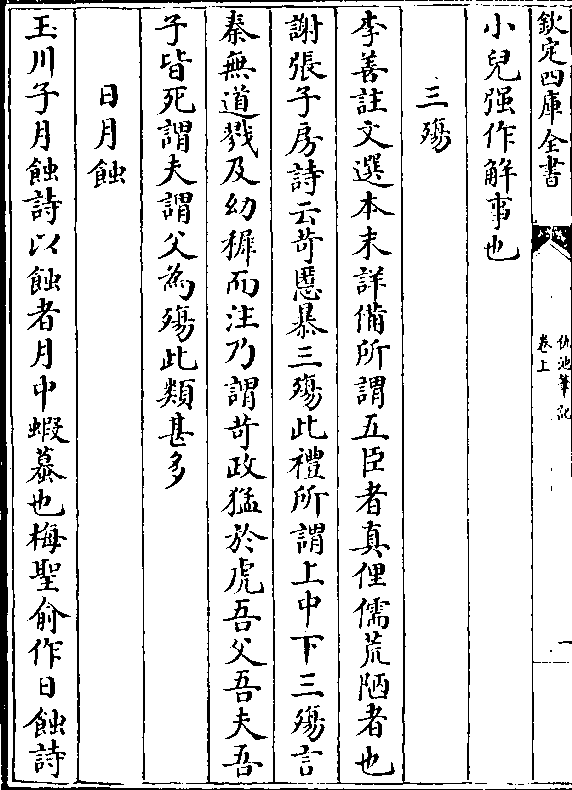 欽定四庫全書
仇池筆記
卷上
一
小兒强作解事也
三殤
李善註文選本末詳備所謂五臣者真俚儒荒陋者也
謝張子房詩云苛慝暴三殤此禮所謂上中下三殤言
秦無道戮及幼穉而注乃謂苛政猛於虎吾父吾夫吾
子皆死謂夫謂父為殤此類甚多
日月蝕
玉川子月蝕詩以蝕者月中蝦蟇也梅聖俞作日蝕詩